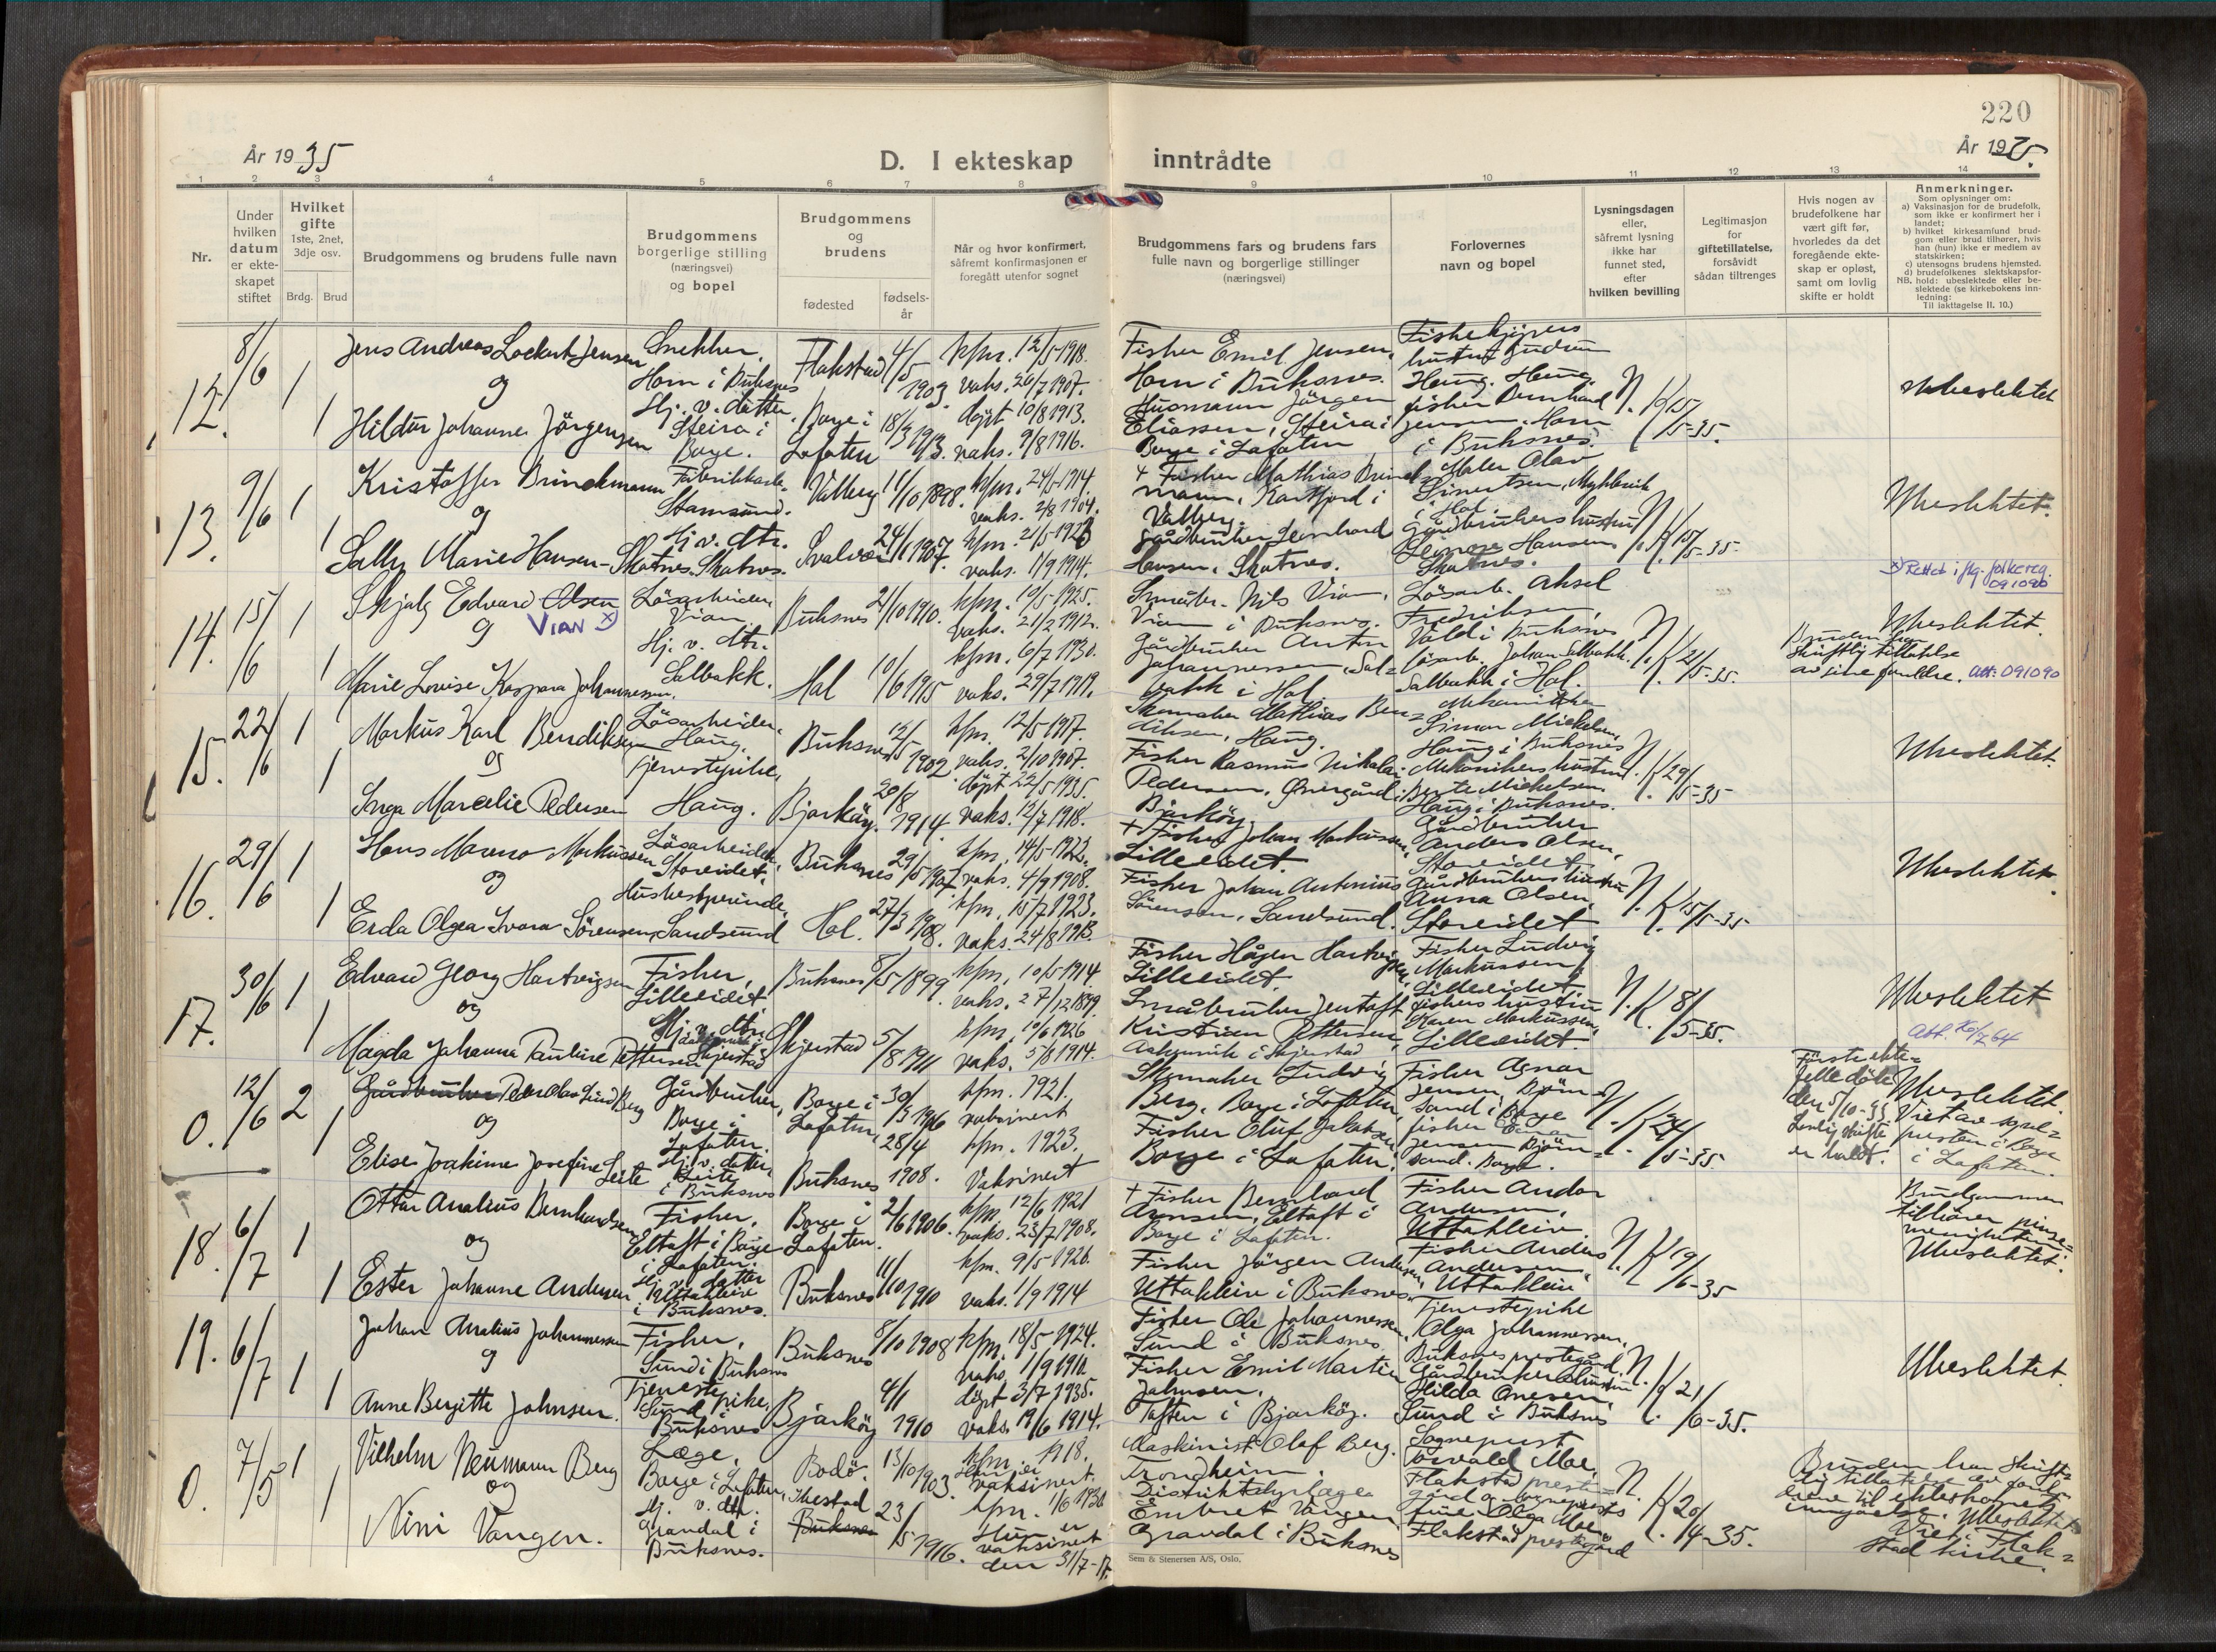 220
År 1935
D. I ekteskap inntrådte
År 1935.
1 2 3 4 5 6 7 8 9 10 11 12 13 14
Nr.
Under hvilken datum er ekte-skapet stiftet
Hvilket gifte 1ste, 2net, 3dje osv.
Brdg. Brud
Brudgommens og brudens fulle navn
Brudgommens borgerlige stilling (næringsvei) og bopel
Brudgommens og brudens
fødested
fødsels-år
Når og hvor konfirmert, såfremt konfirmasjonen er foregått utenfor sognet
Brudgommens fars og brudens fars fulle navn og borgerlige stillinger (næringsvei)
Forlovernes navn og bopel
Lysningsdagen eller, såfremt lysning ikke har funnet sted, efter hvilken bevilling
Legitimasjon for giftetillatelse, forsåvidt sådan tiltrenges
Hvis nogen av brudefolkene har vært gift før, hvorledes da det foregående ekte-skap er opløst, samt om lovlig skifte er holdt
Anmerkninger.
Som oplysninger om:
a) Vaksinasjon for de brudefolk, som ikke er konfirmert her i landet;
b) hvilket kirkesamfund brud-gom eller brud tilhører, hvis han (hun) ikke er medlem av statskirken;
c) utensogns brudens hjemsted.
d) brudefolkenes slektskapsfor-hold: ubeslektede eller be-slektede (se kirkebokens inn-ledning: Til iakttagelse II. 10.)
NB.
12. 8/6 1 1
Jens Andreas Lockert Jensen
og
Hildur Johanne Jörgensen
Snekker.
Horn i Buksnes
Hj. v. datter.
Steira i
Borge.
Flakstad 4/5 1903
Borge i Lofoten 18/3 1913.
kfm. 12/5 1918.
vaks. 26/7 1907.
döpt 10/8 1913.
vaks. 9/8 1916.
Fisker Emil Jensen,
Horn i Buksnes.
Husmann Jörgen
Eliassen, Steira i
Borge i Lofoten
Fiskekjöpers
hustru Gudrun
Haug. Haug.
fisker Bernhard
Jensen. Horn
i Buksnes.
N. K. 15/5-35.
Ubeslektet
13. 9/6 1 1
Kristoffer Brinckmann
og
Sally Marie Hansen-Skotnes.
Fabrikkarb.
Stamsund.
Hj v. dtr.
Skotnes.
Valberg 11/10 1898.
Svolvær 24/1 1907.
kfm. 24/5 1914
vaks. 2/8 1904.
kfm. 21/5 1923
vaks. 1/9 1914.
+ Fisker Mathias Brinck=
mann, Kartfjord i
Valberg.
Gårdbruker Leonhard
Hansen, Skotnes.
Maler Olav
Sivertsen, Myklevik
i Hol.
Gårdbrukers hustru
Leonora Hansen
Skotnes.
N. K. 15/5-35.
Ubeslektet.
14. 15/6 1 1
Skjalg Edvard Olsen
og VIAN x)
Marie Lovise Kaspara Johannessen.
Lösarbeider,
Vian
Hj. v. dtr.
Solbakk.
Buksnes 21/10 1910.
Hol 10/6 1915
kfm. 10/5-1925.
vaks. 21/2 1912.
kfm. 6/7 1930.
vaks. 29/7 1919.
Småbr. Nils Vian,
Vian i Buksnes.
Gårdbruker Anton
Johannessen, Sol=
bakk i Hol.
Lösarb. Aksel
Fredriksen,
Vold i Buksnes
lösarb. Johan Solbakk.
Solbakk i Hol.
N. K. 21/5-35.
x) Rettet iflg. folkereg. 091090
Ubeslektet.
Bruden har
skriftlig tillatelse
av sine foreldre. att: 091090
15. 22/6 1 1
Markus Karl Bendiksen
og
Inga Marcelie Pedersen
Lösarbeider,
Haug.
Tjenestepike,
Haug.
Buksnes 12/5 1902
Bjarköy. 20/8 1914
kfm. 12/5-1917.
vaks. 2/10 1907.
döpt 22/5 1935.
vaks. 12/7 1918.
Skomaker Mathias Ben=
diksen, Haug.
Fisker Rasmus Nikolai
Pedersen, Övergård i
Bjarköy
Mekaniker
Simon Mickelsen,
Haug i Buksnes
Mekanikers hustru
Berte Mickelsen.
Haug i Buksnes.
N. K. 29/5-35
Ubeslektet.
16. 29/6 1 1
Hans Moreno Markussen
og
Erda Olga Ivara Sörensen,
Lösarbeider,
Storeidet.
Husbestyrerinde,
Sandsund
Buksnes 29/5 1907
Hol. 27/3 1908.
kfm. 14/5-1922.
vaks. 4/9 1908.
kfm. 15/7 1923.
vaks. 24/8 1913.
+ Fisker Johan Markussen,
Lilleeidet.
Fisker Johan Antonius
Sörensen, Sandsund.
Gårdbruker
Anders Olsen,
Storeidet
Gårdbrukers hustru
Anna Olsen,
Storeidet
N. K. 15/5-35
Ubeslektet.
17. 30/6 1 1
Edvard Georg Hartvigsen
og
Magda Johanna Pauline Pettersen
Fisker,
Lilleeidet
Hj. v. dtr.
Skjerstad
Buksnes 8/5 1899
Skjerstad 5/8 1911
kfm. 10/5-1914
vaks. 27/12 1899.
kfm. 10/6 1926
vaks. 5/8 1914.
Fisker Hågen Hartvigsen,
Lilleeidet.
Småbruker Jentoft
Kristian Pettersen,
i Skjerstad
Fisker Ludvig
Markussen,
Lilleeidet,
fiskers hustru
Karen Markussen,
Lilleeidet.
N. K. 8/5-35.
Ubeslektet
Att. 20/7 64
0. 12/6 2 1
Gårdbruker Peder Olav Lund Berg
og
Elise Joakime Josefine Leite
Gårdbruker,
Borge i
Lofoten.
Hj. v. datter,
Leite
i Buksnes
Borge i Lofoten, 30/3 1906
Buksnes 28/4 1908.
kfm. 1921.
vaksinert
kfm. 1923.
Vaksinert
Skomaker Ludvig
Berg, Borge i Lofoten
Fisker Oluf Jakobsen
Borge i Lofoten.
Fisker Agnar
Jensen, Björn=
sand i Borge
fisker
Jensen Björn=
sand. Borge.
N. K. 24/5-35.
Förste ekte=
felle döde
den 5/10-33
Lovlig skifte
er holdt.
Ubeslektet.
Viet av sogne=
presten i Borge
i Lofoten.
18. 6/7 1 1
Ottar Analius Bernhardsen
og
Ester Johanne Andersen
Fisker,
Eltoft i Borge
i Lofoten.
Hj. v. datter
Uttakleiv
i Buksnes.
Borge i Lofoten. 2/6 1906.
Buksnes 11/10 1910
kfm 12/6 1921
vaks. 23/7 1908.
kfm. 9/5-1926.
vaks. 1/9 1914
+ Fisker Bernhard
Aronsen, Eltoft i
Borge i Lofoten.
Fisker Jörgen Andersen,
Uttakleiv i Buksnes
Fisker Andor
Andersen,
Uttakleiv.
Fisker Anders
Andersen,
Uttakleiv
N. K. 19/6-35
Brudgommen
tilhörer pinse=
menigheten.
Ubeslektet.
19. 6/7 1 1
Johan Analius Johannessen
og
Anne Bergitte Johnsen.
Fisker,
Sund i Buksnes
Tjeneste
pike,
Sund
Buksnes
Buksnes 8/10 1908
Bjarköy 4/1 1910
kfm. 18/5 1924.
vaks. 1/9 1910.
döpt 3/7 1935.
vaks. 19/6 1914.
Fisker Ole Johannessen,
Sund i Buksnes
Fisker Emil Martin
Johnsen,
Toften i Bjarköy.
Tjenestepike
Olga Johannessen,
Buksnes prestegård.
Gårdbrukers hustru
Hilda Onesen
Sund i Buksnes
N. K. 21/6-35.
Ubeslektet.
0. 7/5 1 1
Vilhelm Neumann Berg
og
Nini Vangen.
Læge,
Borge i Lofoten,
Hj. v. dtr.
Gravdal i
Buksnes.
Bodö. 13/10 1903.
Ibestad
Buksnes 23/5 1916.
kfm. 1918.
Han er
vaksinert.
kfm. 1/6 1930
Hun er
vaksinert
den 31/7-17.
Maskinist Olaf Berg.
Trondheim.
Distriktslege
Embret Vangen
Gravdal i Buksnes
Sogneprest
Torvald Moe,
Flakstad preste=
gård og sogneprests
frue Olga Moe,
Flakstad prestegård
N. K. 20/4-35.
Bruden har skrift=
lig tillatelse av foreld=
rene til ekteskapets
inngåelse. Ubeslektet
Viet i Flak=
stad kirke.
Sem & Stenersen A/S, Oslo.